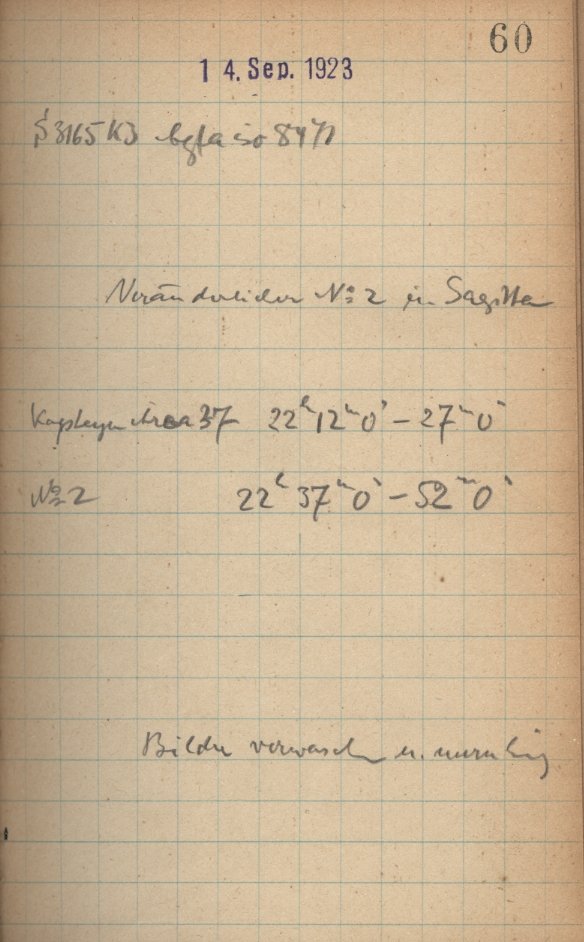 60
14. Sep. 1923
S 3165 K3 Agfa iso 8471
Veränderlicher No 2 in Sagitta
Kapteyn Area 37 22h 12m 0s – 27m 0s
No 2 22h 37m 0s – 52m 0s
Bilder verwaschen u. unruhig